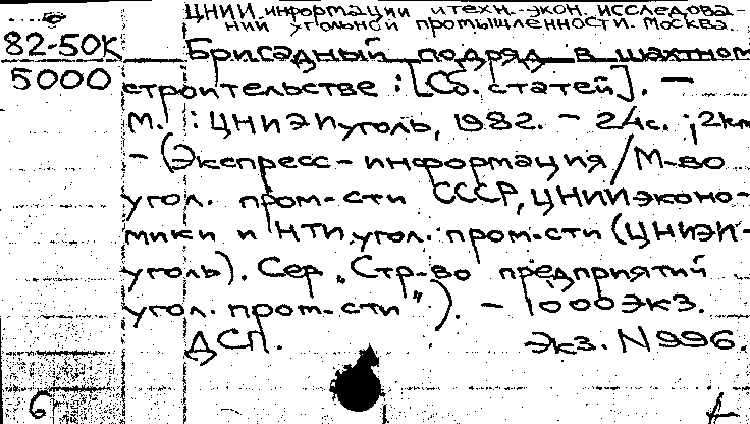 ЦНИИ информации и техн.-экон. исследова-
ний угольной промышленности. Москва.
82-50К
Бригадный подряд в шахтном
5000
строительстве : [Сб. статей]. —
М. : ЦНИЭИуголь, 1982. - 24с. ; 2км
- (Экспресс-информация / М-во
угол. пром-сти СССР, ЦНИИэконо-
мики и НТИ угол. пром-сти (ЦНИЭИ-
уголь). Сер. „Стр-во предприятий
угол. пром-сти"). - 1000экз.
ДСП. Экз. N 996.
6